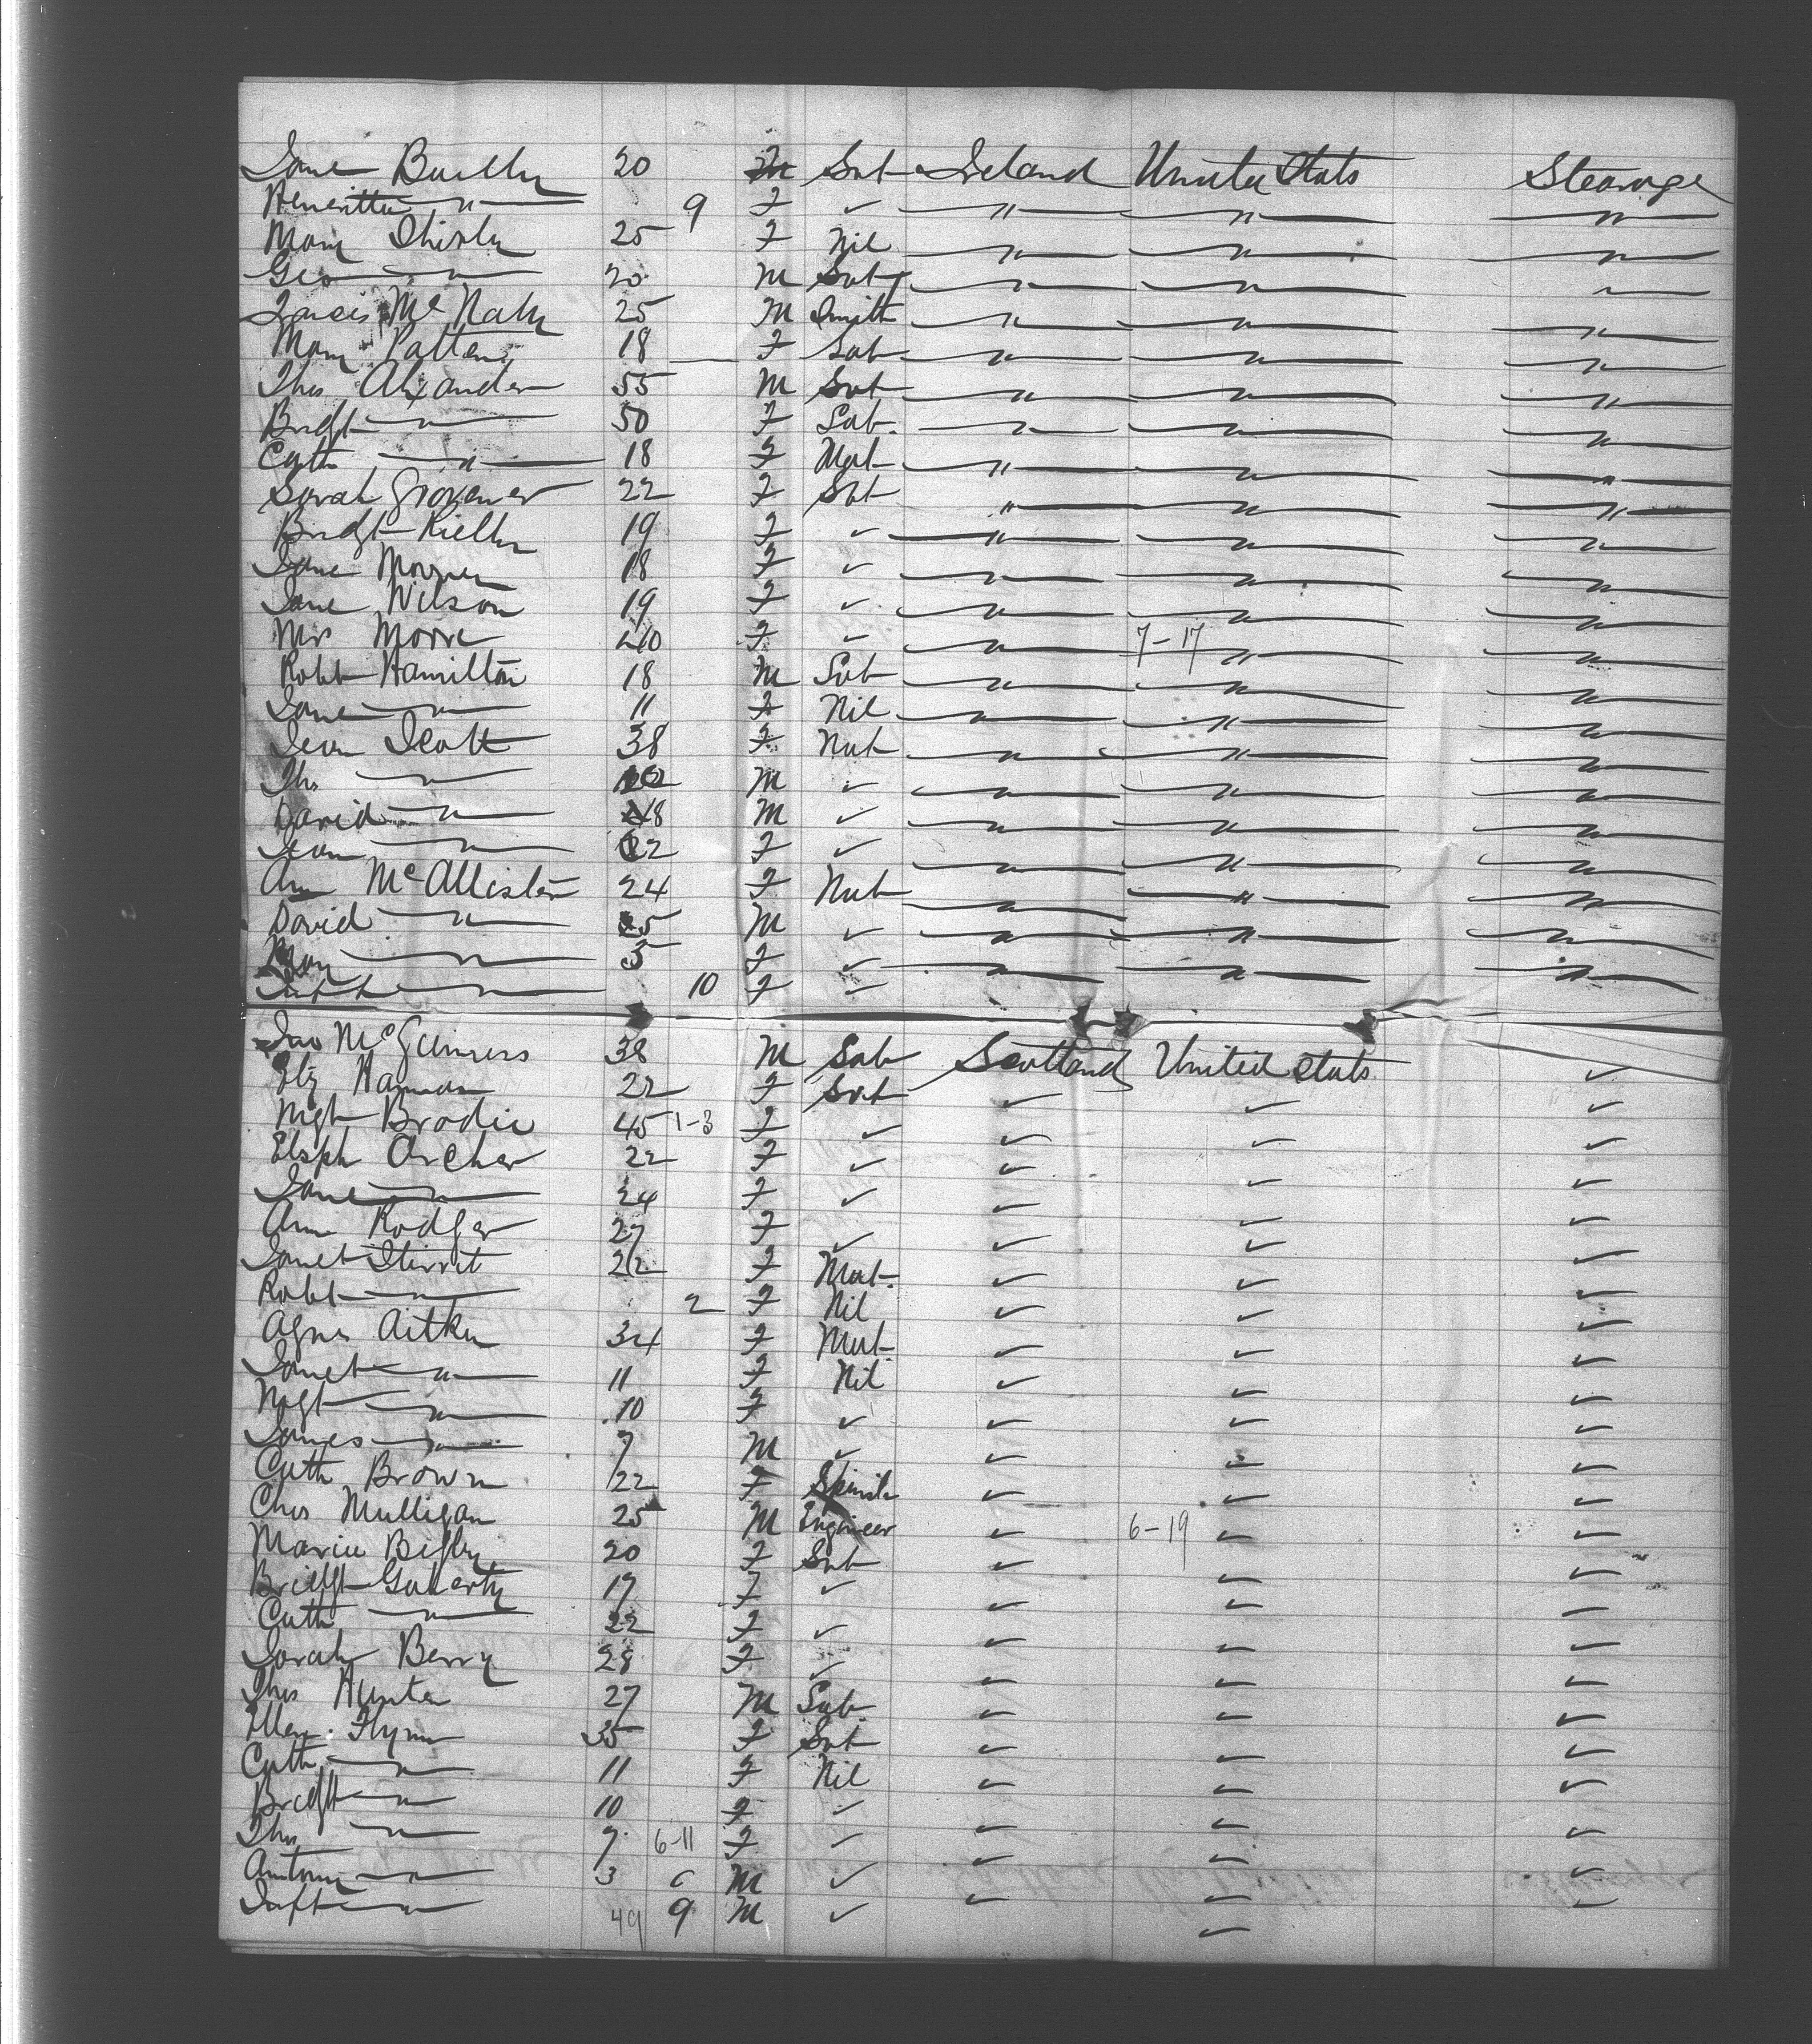 Jane Buelly 20 F Svt Ireland United Stats Steerage
Henrietta " 9 F ✓ " " "
Mary Shirly 25 F Nil " " "
Geo " 20 M Svt " " "
Francis McNally 25 M Smith " " "
Mary Patten 18 F Lab " " "
Thos Alxander 55 M Svt " " "
Bridgt " 50 F Lab " " "
Cath " 18 F " " "
Sarah Grovener 22 F Svt " " "
Bridgt Kielly 19 F ✓ " " "
Jane 18 F ✓ " " "
Jane Wilson 19 F ✓ " " "
Mrs Moore 40 F ✓ " 7-17 " "
Robt Hamilton 18 M Lab " " "
Jane " 11 F Nil " " "
Jean Scott 38 F " " "
Thos " M ✓ " " "
David " M ✓ " " "
Jean " F ✓ " " "
Ann McAllister 24 F " " "
David " M ✓ " " "
May " 3 F ✓ " " "
Inft " 10 F ✓
Jno McGuinness 38 M Lab Scotland United Stats ✓
Elz Hannan 22 F Svt ✓ ✓ ✓
Mgt Brodie 45 1-3 F ✓ ✓ ✓ ✓
Elsph Archer 22 F ✓ ✓ ✓ ✓
Jane " 24 F ✓ ✓ ✓ ✓
Ann Rodger 27 F ✓ ✓ ✓ ✓
Janet Stirrit 22 F Mat. ✓ ✓ ✓
Robt " 2 F Nil ✓ ✓ ✓
Agnes Aitken 34 F Mat. ✓ ✓ ✓
Janet " 11 F Nil ✓ ✓ ✓
Mgt " 10 F ✓ ✓ ✓ ✓
James " 7 M ✓ ✓ ✓ ✓
Cath Brown 22 F Spinstr ✓ ✓ ✓
Chas Mulligan 25 M Engineer ✓ 6-19 ✓ ✓
Maria 20 F Svt ✓ ✓ ✓
Bridgt Gaherty 19 F ✓ ✓ ✓ ✓
Cath " 22 F ✓ ✓ ✓ ✓
Sarah Berry 28 F ✓ ✓ ✓ ✓
Thos Hunter 27 M Lab ✓ ✓ ✓
Ellen Flynn 35 F Svt ✓ ✓ ✓
Cath " 11 F Nil ✓ ✓ ✓
Bridgt " 10 F ✓ ✓ ✓ ✓
Thos " 7 6-11 F ✓ ✓ ✓ ✓
Antony " 3 M ✓ ✓ ✓ ✓
Inft " 49 9 M ✓ ✓